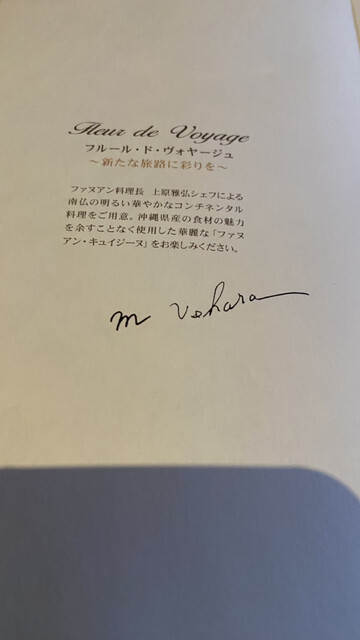 Fleur de Voyage
フルール・ド・ヴォヤージュ
～新たな旅路に彩りを～
ファヌアン料理長 上原雅弘シェフによる
南仏の明るい華やかなコンチネンタル
料理をご用意。沖縄県産の食材の魅力
を余すことなく使用した華麗な「ファヌ
アン・キュイジーヌ」をお楽しみください。
m Uehara